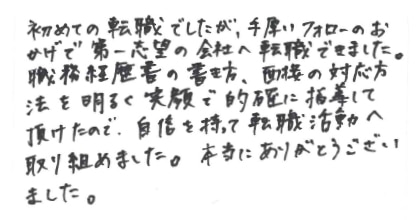 初めての転職でしたが、手厚いフォローのお
かげで第一志望の会社へ転職できました。
職務経歴書の書き方、面接の対応方
法を明るく笑顔で的確に指導して
頂けたので、自信を持って転職活動へ
取り組めました。本当にありがとうござい
ました。